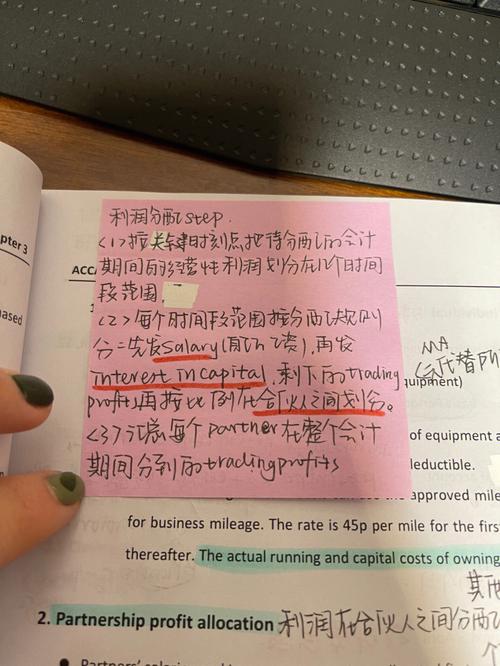 利润分配step.
<1>按关键时刻点,把待分配的会计
期间的经营性利润划分在几个时间
段范围
<2>每个时间段范围按分配规则
分:先发salary(前几个资),再发
interest in capital,剩下的trading
profit,再按比例在合伙人之间划分。
<3>汇总每个partner在整个会计
期间分到的trading profits
pter 3
ased
ACC
MA
会代替
quipment)
of equipment a
leductible.
approved mile
for business mileage. The rate is 45p per mile for the first
thereafter. The actual running and capital costs of owning
2. Partnership profit allocation 利润在合伙人之间分配